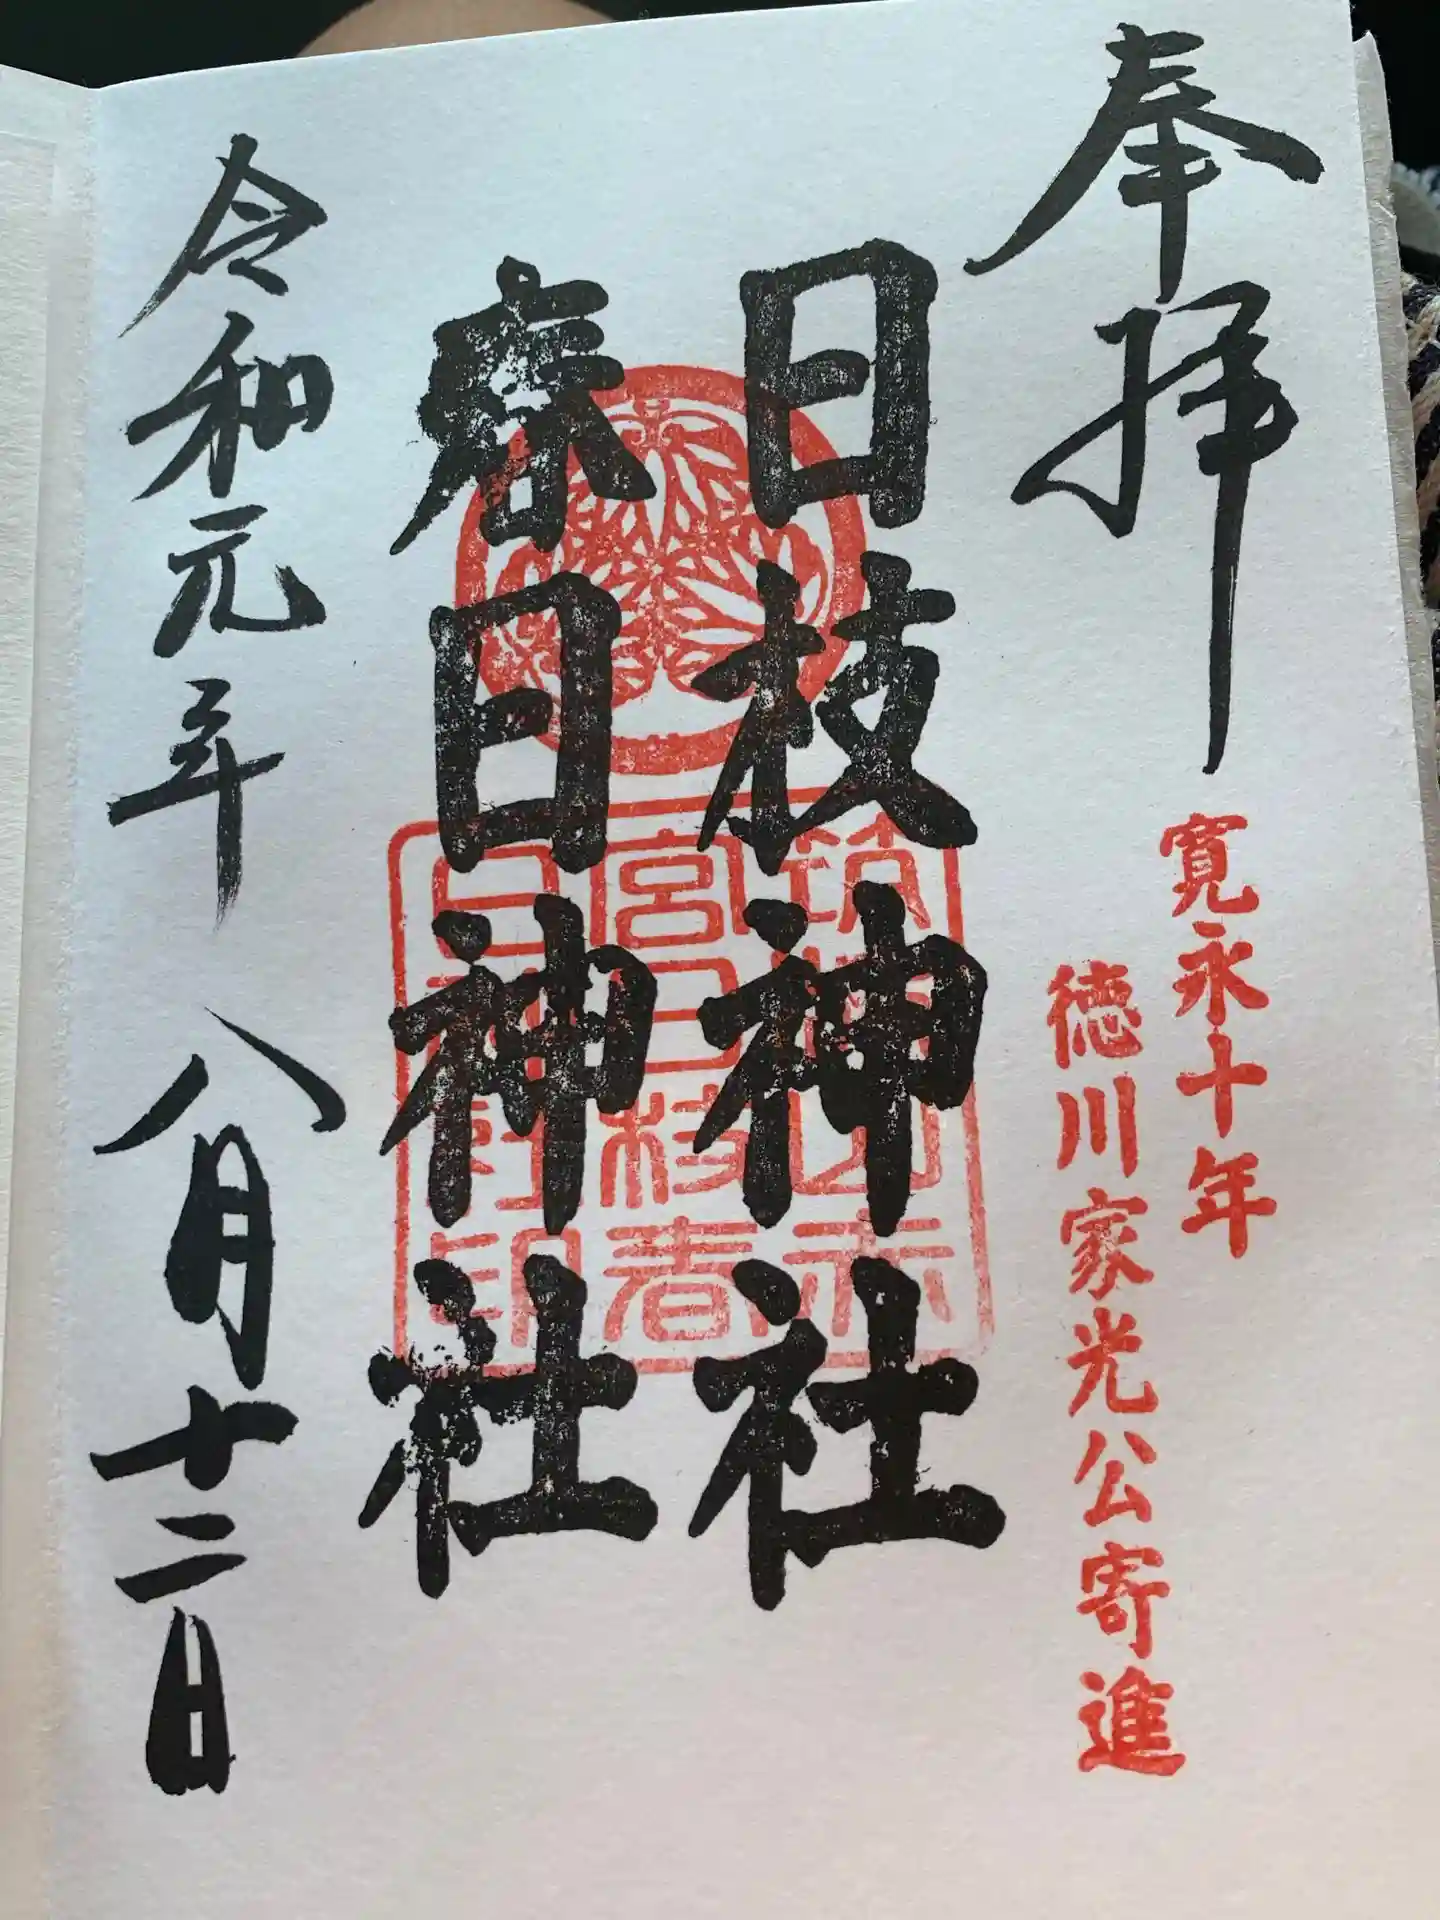 奉拝
寛永十年
徳川家光公寄進
日枝神社
春日神社
筑波山六
宮日枝春
日神社印
令和元年 八月十二日